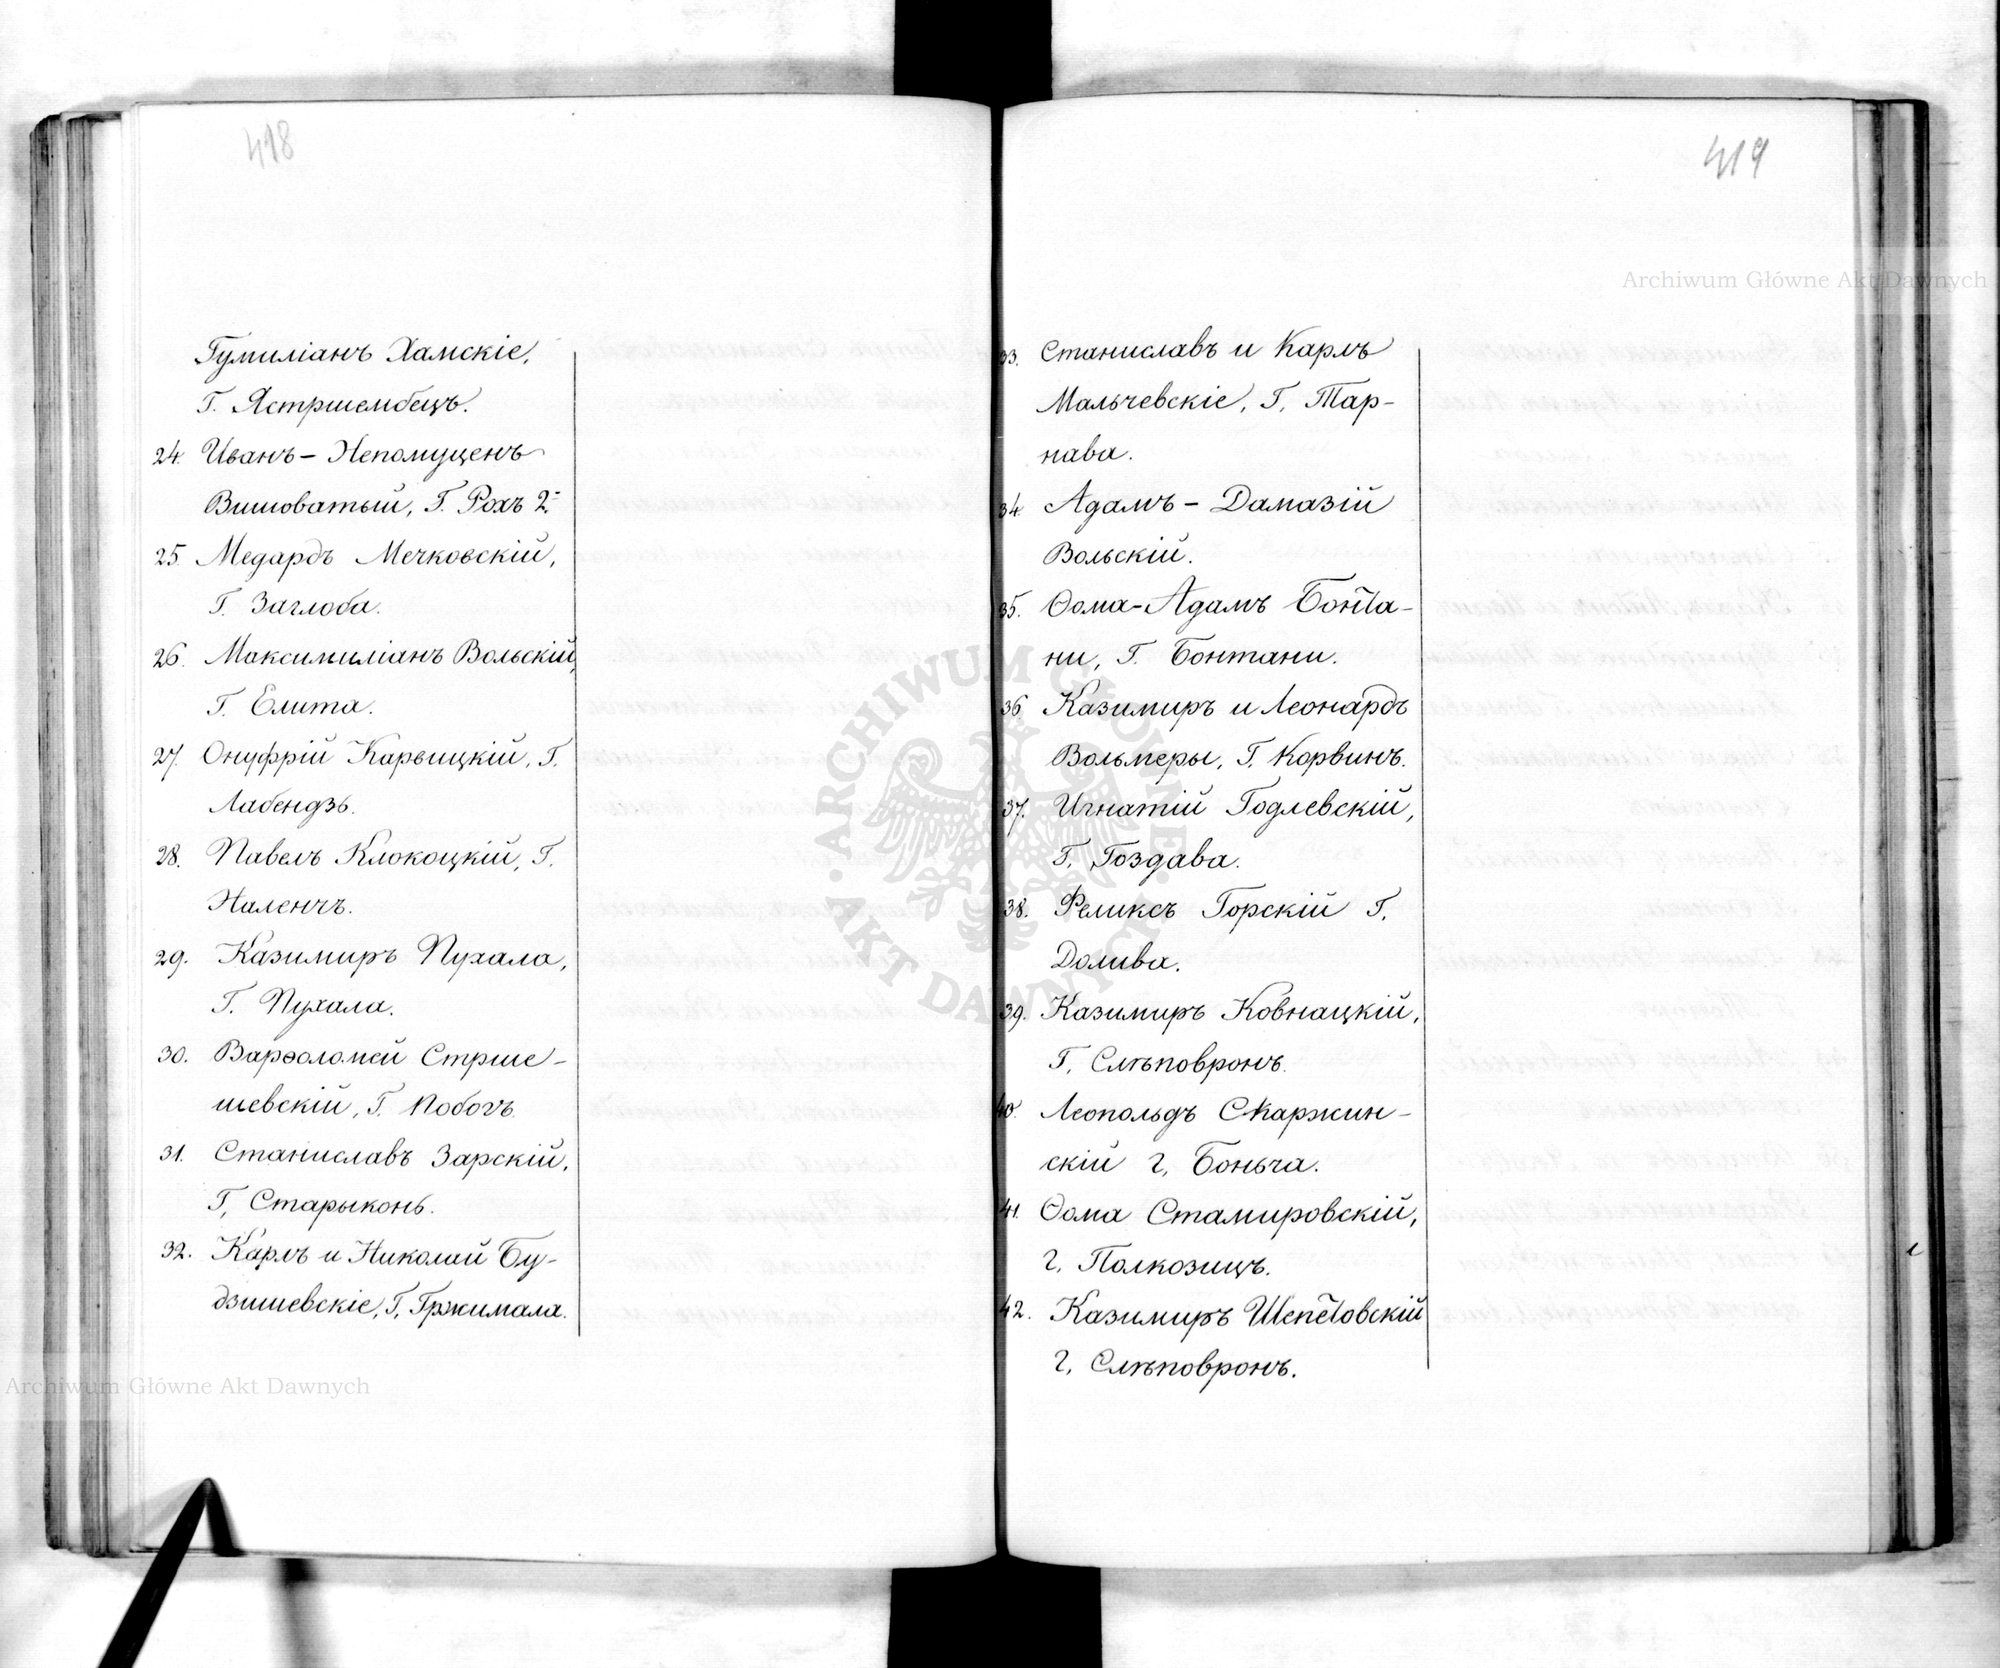 418
Гумиліанъ Хамскіе,
Г. Ястршембецъ.
24. Иванъ - Непомуценъ
Вишоватый, Г. Рохъ 2-
25. Медардъ Мечковскій,
Г. Заглоба.
26. Максимиліанъ Вольскій,
Г. Елита.
27. Онуфрій Карвицкій, Г.
Лабендзь.
28. Павелъ Клокоцкій, Г.
Наленчъ.
29. Казимиръ Пухала,
Г. Пухала.
30. Варѳоломей Стрше-
шевскій, Г. Побогъ.
31. Станиславъ Зарскій,
Г, Старыконь.
32. Карлъ и Николай Бу-
дзишевскіе, Г, Гржимала.
419
33. Станиславъ и Карлъ
Мальчевскіе, Г, Тар-
нава.
34. Адамъ - Дамазій
Вольскій.
35. Ѳома-Адамъ Бонта-
ни, Г. Бонтани.
36. Казимиръ и Леонардъ
Вольмеры, Г, Корвинъ.
37. Игнатій Годлевскій,
Г, Гоздава.
38. Феликсъ Горскій Г,
Долива.
39. Казимиръ Ковнацкій,
Г, Слѣповронъ.
40. Леопольдъ Скаржин-
скій Г, Боньча.
41. Ѳома Стамировскій,
Г, Полкозицъ.
42. Казимиръ Шептовскій
Г, Слѣповронъ.
Archiwum Główne Akt Dawnych
Archiwum Główne Akt Dawnych
ARCHIWUM GŁÓWNE AKT DAWNYCH